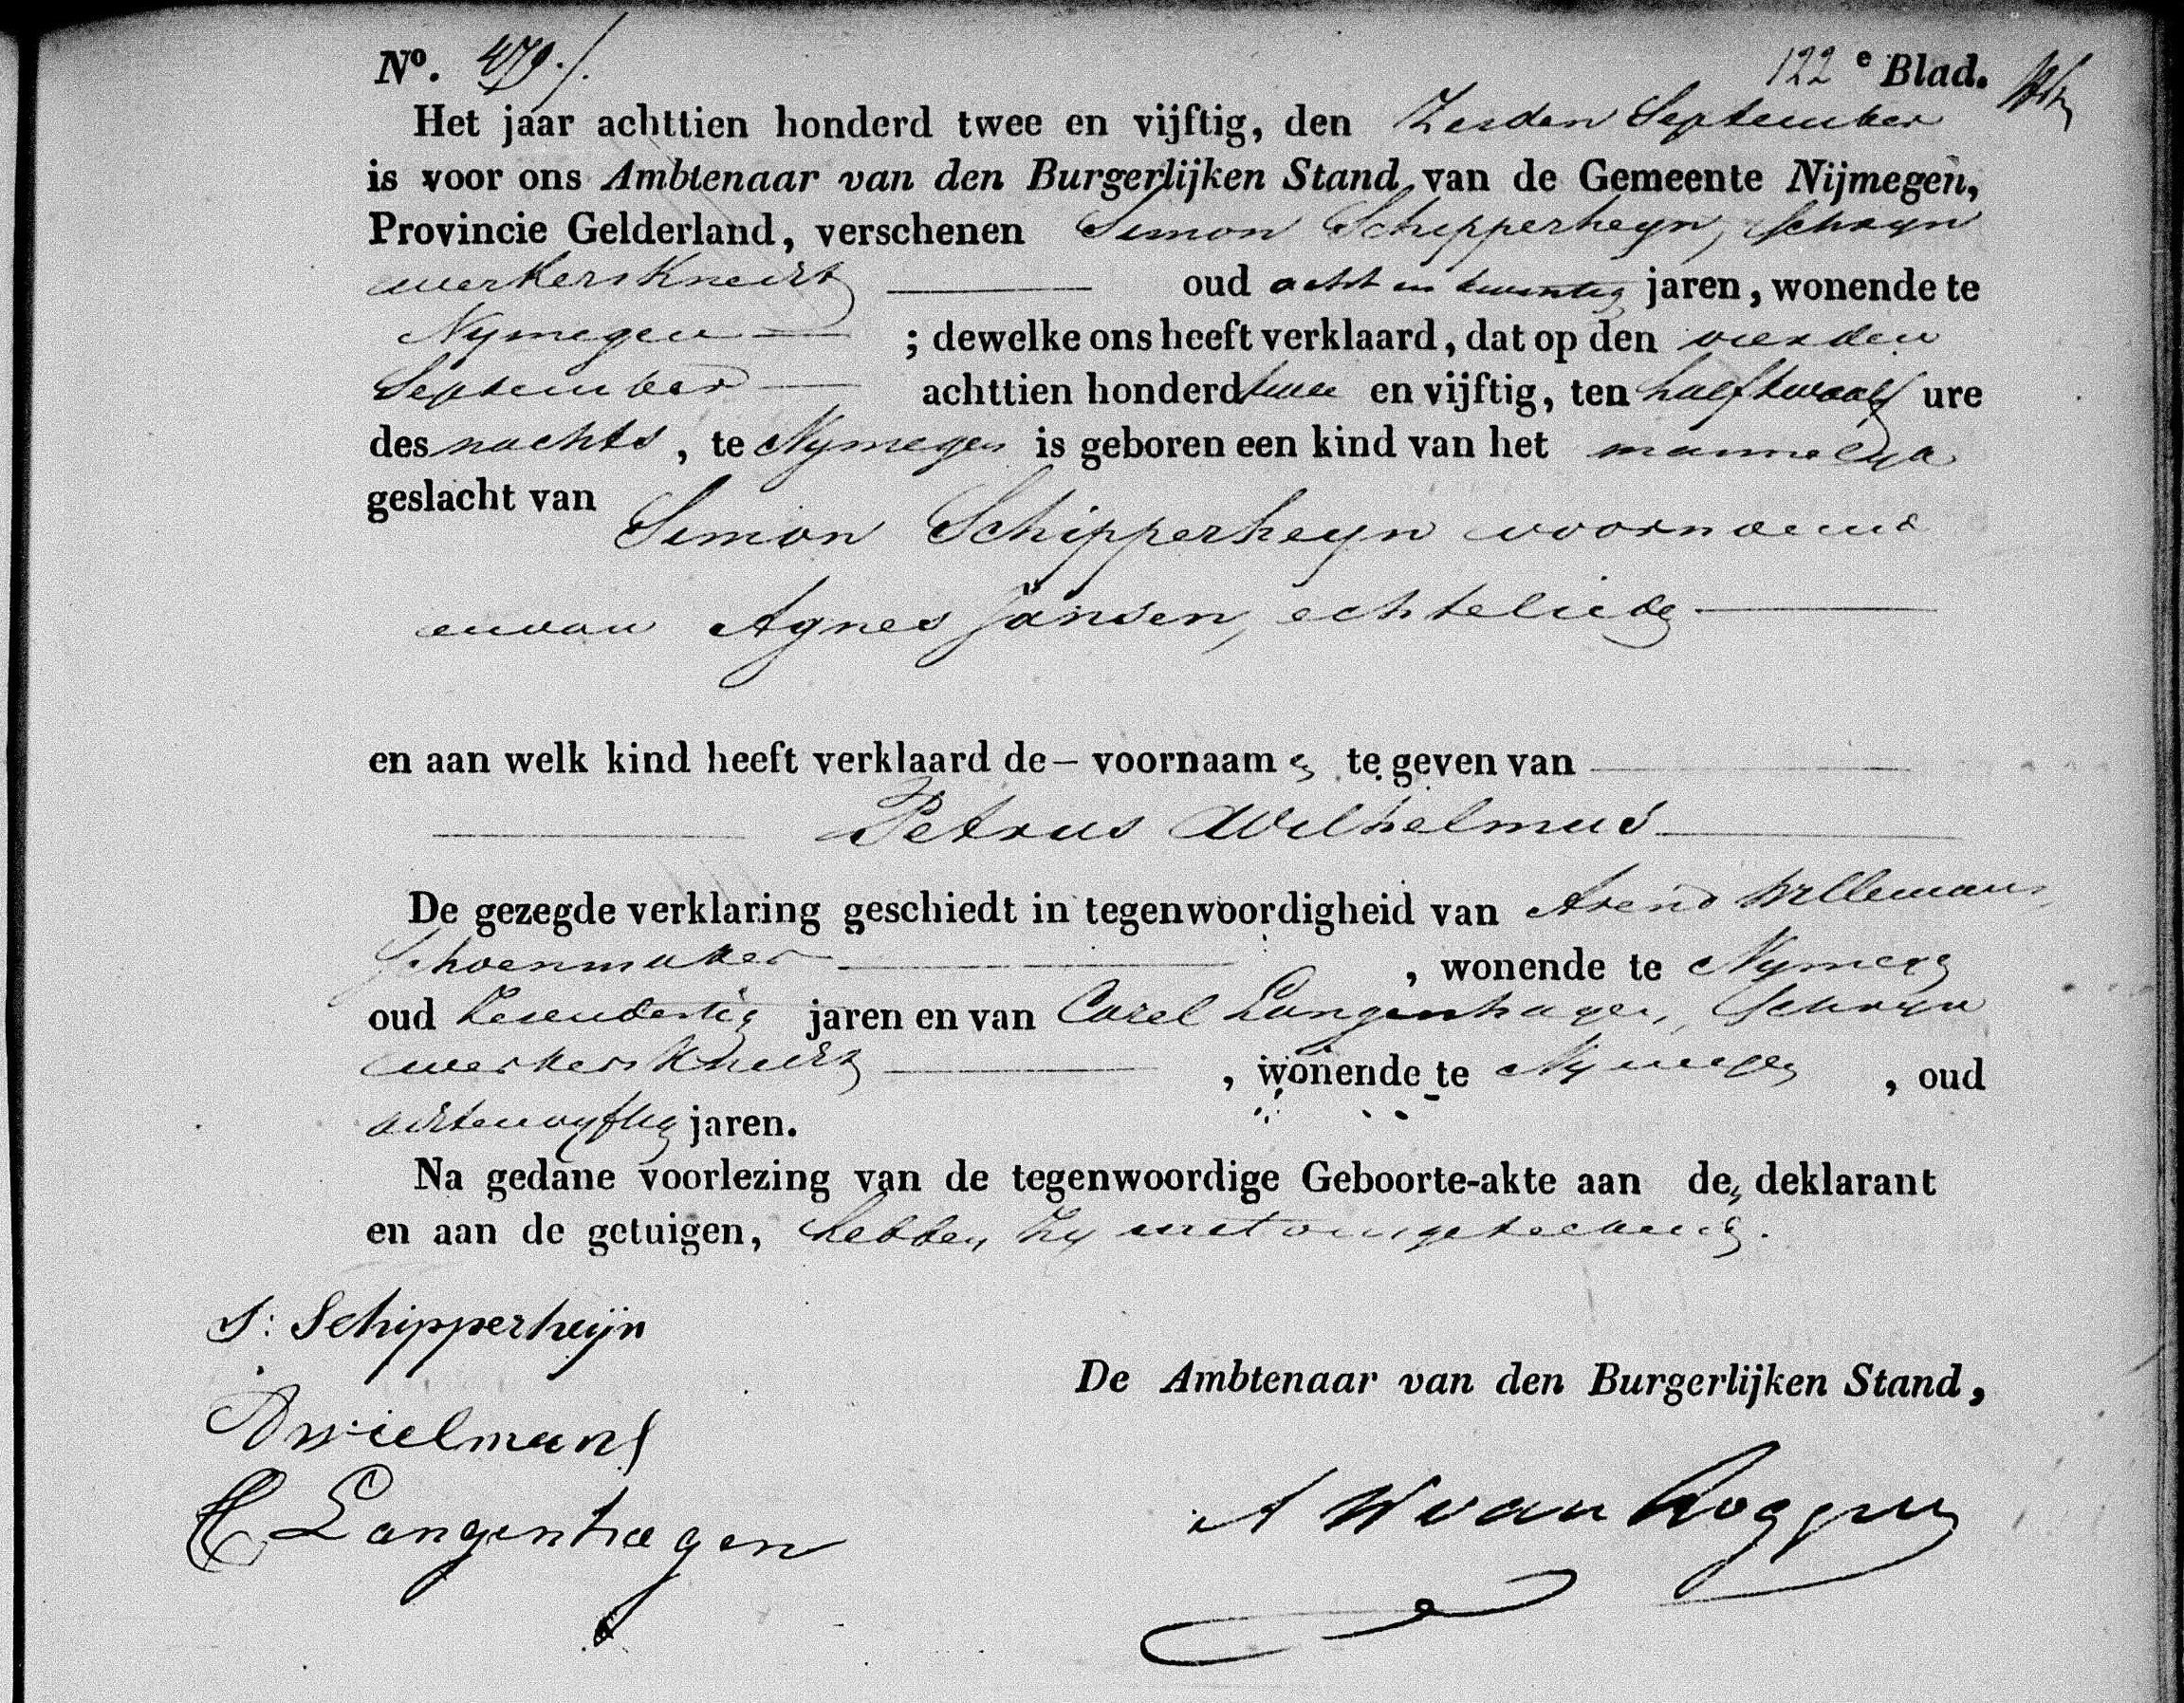 No. 479. 122 e Blad.
Het jaar achttien honderd twee en vijftig, den Zesden September
is voor ons Ambtenaar van den Burgerlijken Stand van de Gemeente Nijmegen,
Provincie Gelderland, verschenen Simon Schipperheyn, schryn
werkersknecht oud acht en twintig jaren, wonende te
Nymegen ; dewelke ons heeft verklaard, dat op den vierden
September achttien honderd twee en vijftig, ten half twaalf ure
des nachts, te Nymegen is geboren een kind van het mannelyk
geslacht van
Simon Schipperheyn voornoemd
en van Agnes Jansen, echtelieden
en aan welk kind heeft verklaard de – voornaamen te geven van
Petrus Wilhelmus
De gezegde verklaring geschiedt in tegenwoordigheid van Arend Willemans,
Schoenmaker , wonende te Nymegen
oud Zesendertig jaren en van Carel Langenhagen, schryn
werkersknecht , wonende te Nymegen , oud
achtenvyftig jaren.
Na gedane voorlezing van de tegenwoordige Geboorte-akte aan den deklarant
en aan de getuigen, hebben zy met ons geteekend.
S: Schipperheijn
De Ambtenaar van den Burgerlijken Stand,
A Wielmans
C Langenhagen